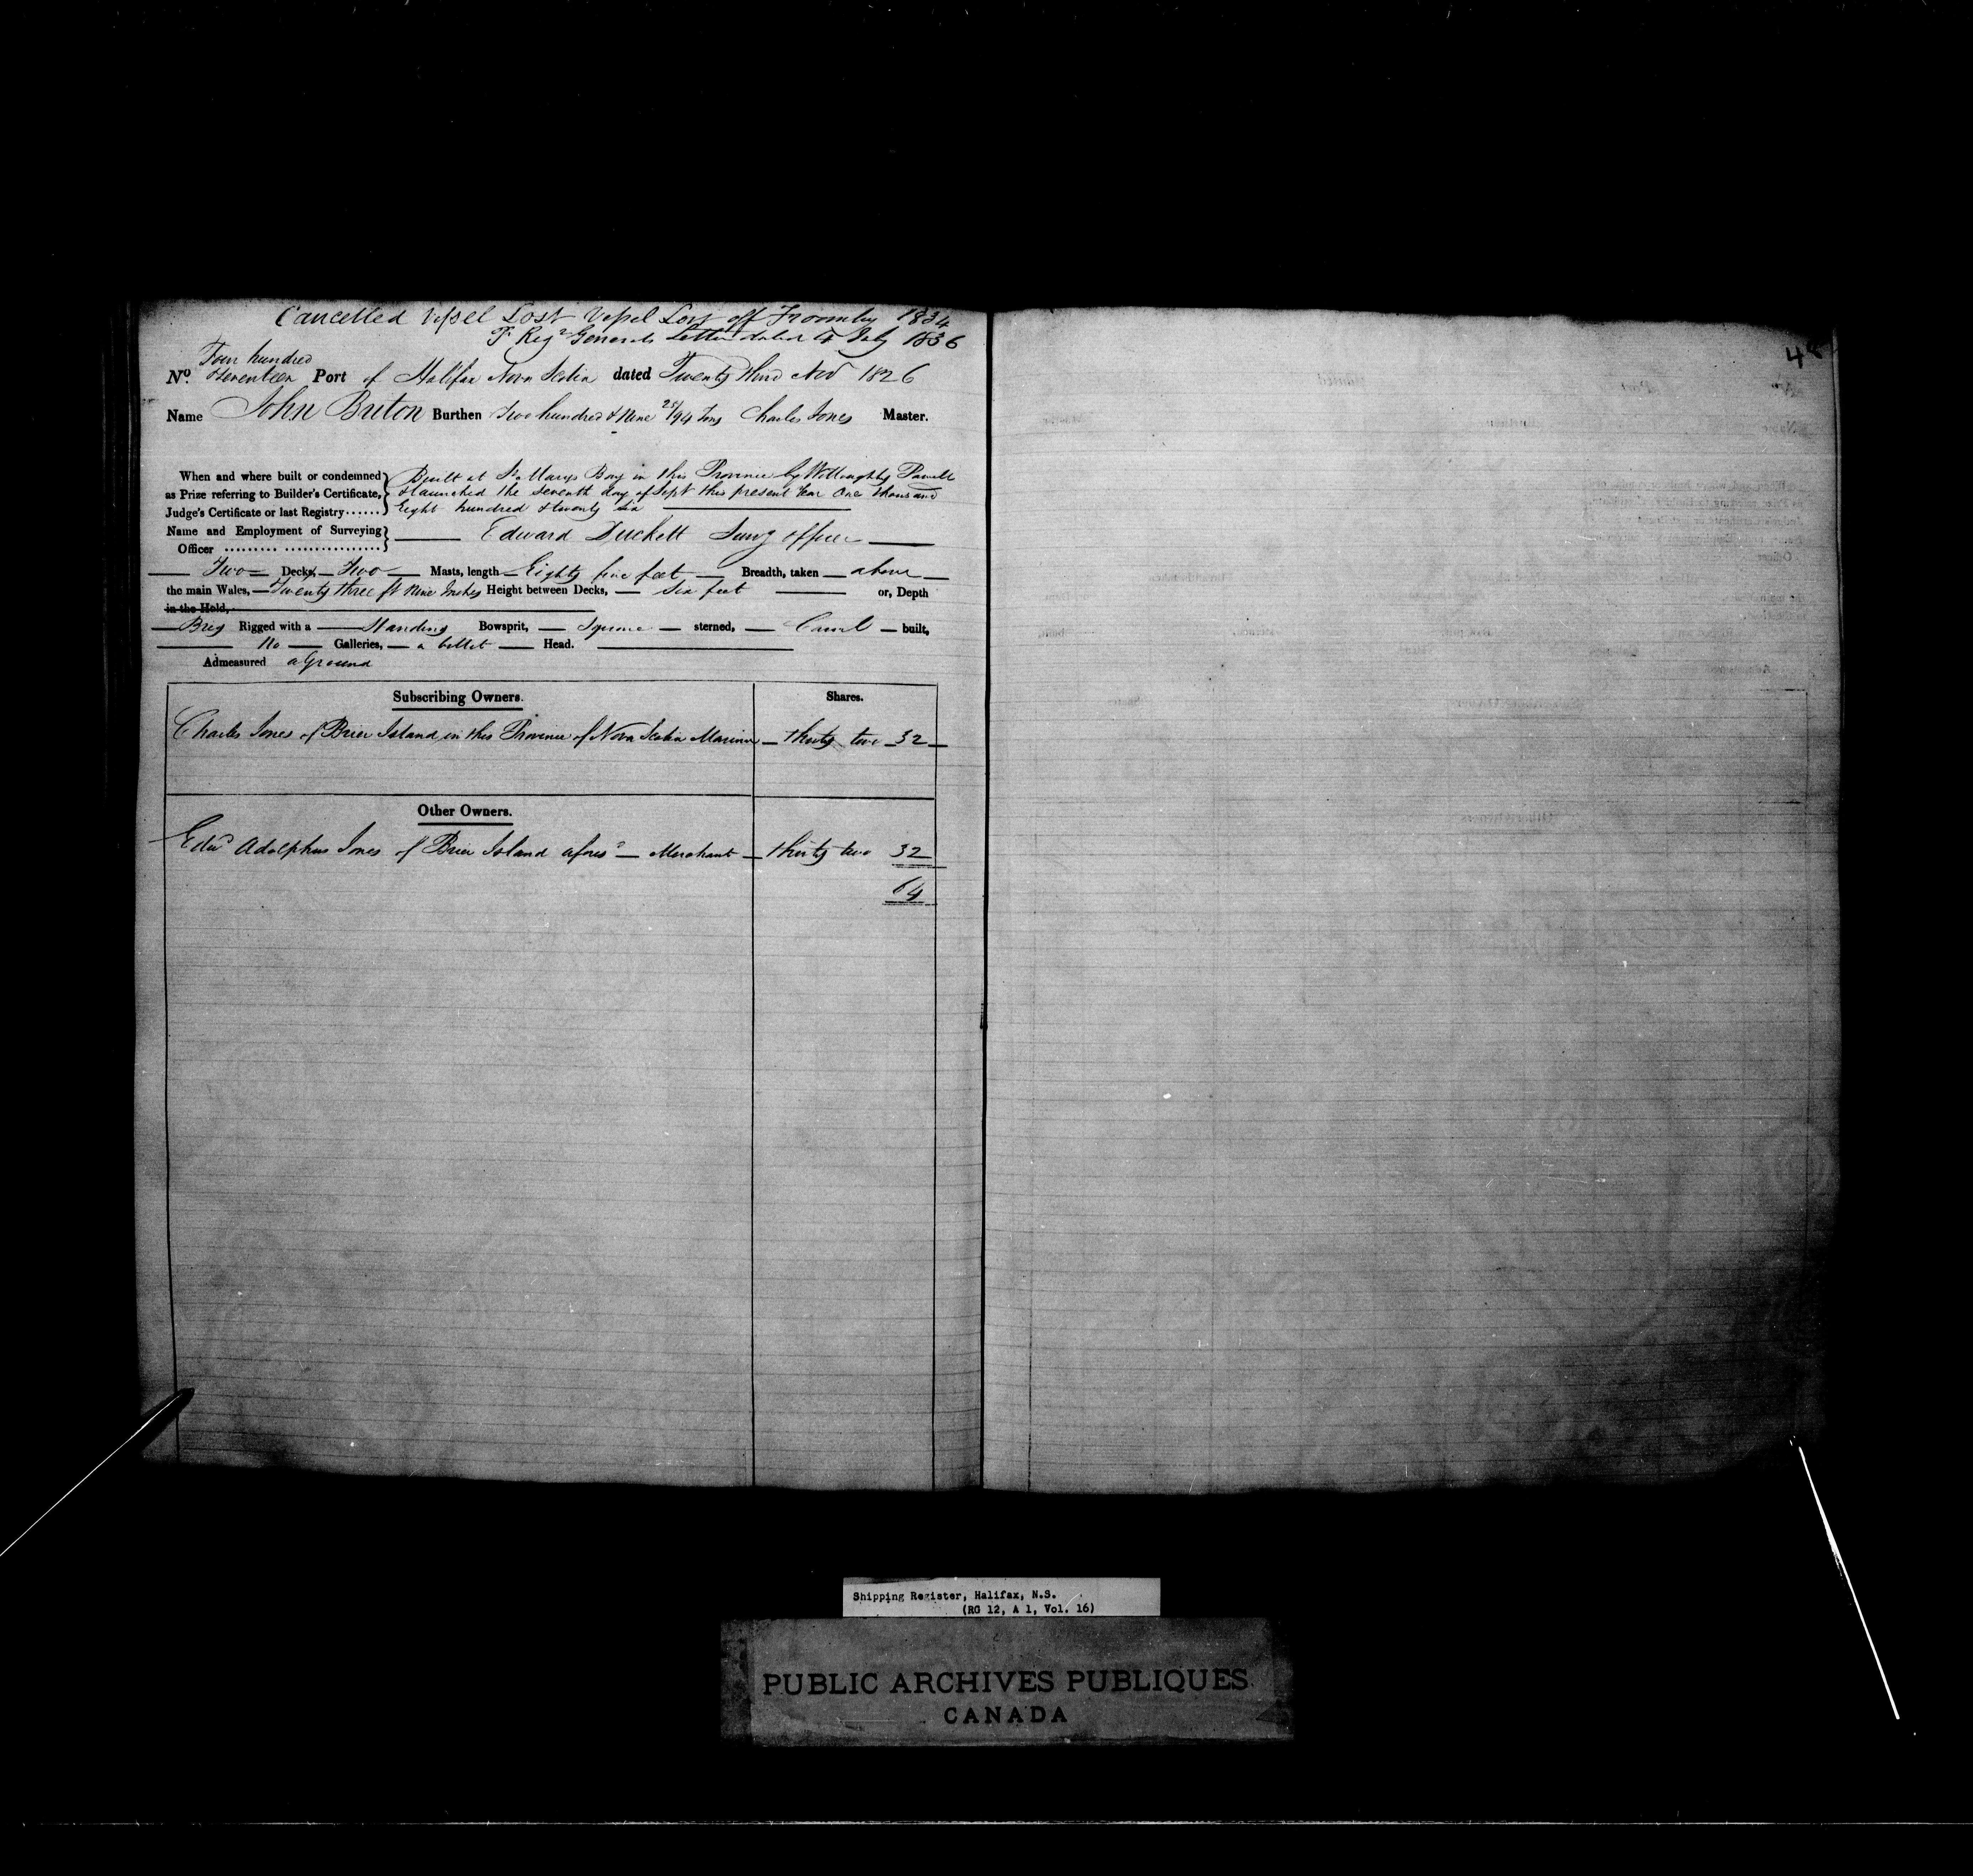 Cancelled Vessel Lost Vessel Lost off Froomby 1834
Pr Regr Generals Letter dated 4 July 1836
Four hundred
No. & Seventeen Port of Halifax Nova Scotia dated Twenty third Nov 1826
Name John Briton Burthen Two hundred & Nine 25/94 Tons Charles Jones Master.
When and where built or condemned Built at St Marys Bay in this Province by Willoughby
as Prize referring to Builder's Certificate, & launched the Seventh day of Sept this present Year One thousand
Judge's Certificate or last Registry...... Eight hundred & twenty six
Name and Employment of Surveying
Officer Edward Duckett Survg officer
Two Decks, Two Masts, length Eighty five feet Breadth, taken above
the main Wales, Twenty three ft Nine Inches Height between Decks, Six feet or, Depth
in the Hold,
Brig Rigged with a Standing Bowsprit, Square sterned, Carvel built,
No Galleries, a billet Head.
Admeasured aGround
Subscribing Owners. Shares.
Charles Jones of Brier Island in this Province of Nova Scotia Mariner thirty two 32
Other Owners.
Edwd Adolphus Jones of Brier Island afores'd Merchant thirty two 32
64
Shipping Register, Halifax, N.S.
(RG 12, A 1, Vol. 16)
PUBLIC ARCHIVES PUBLIQUES
CANADA